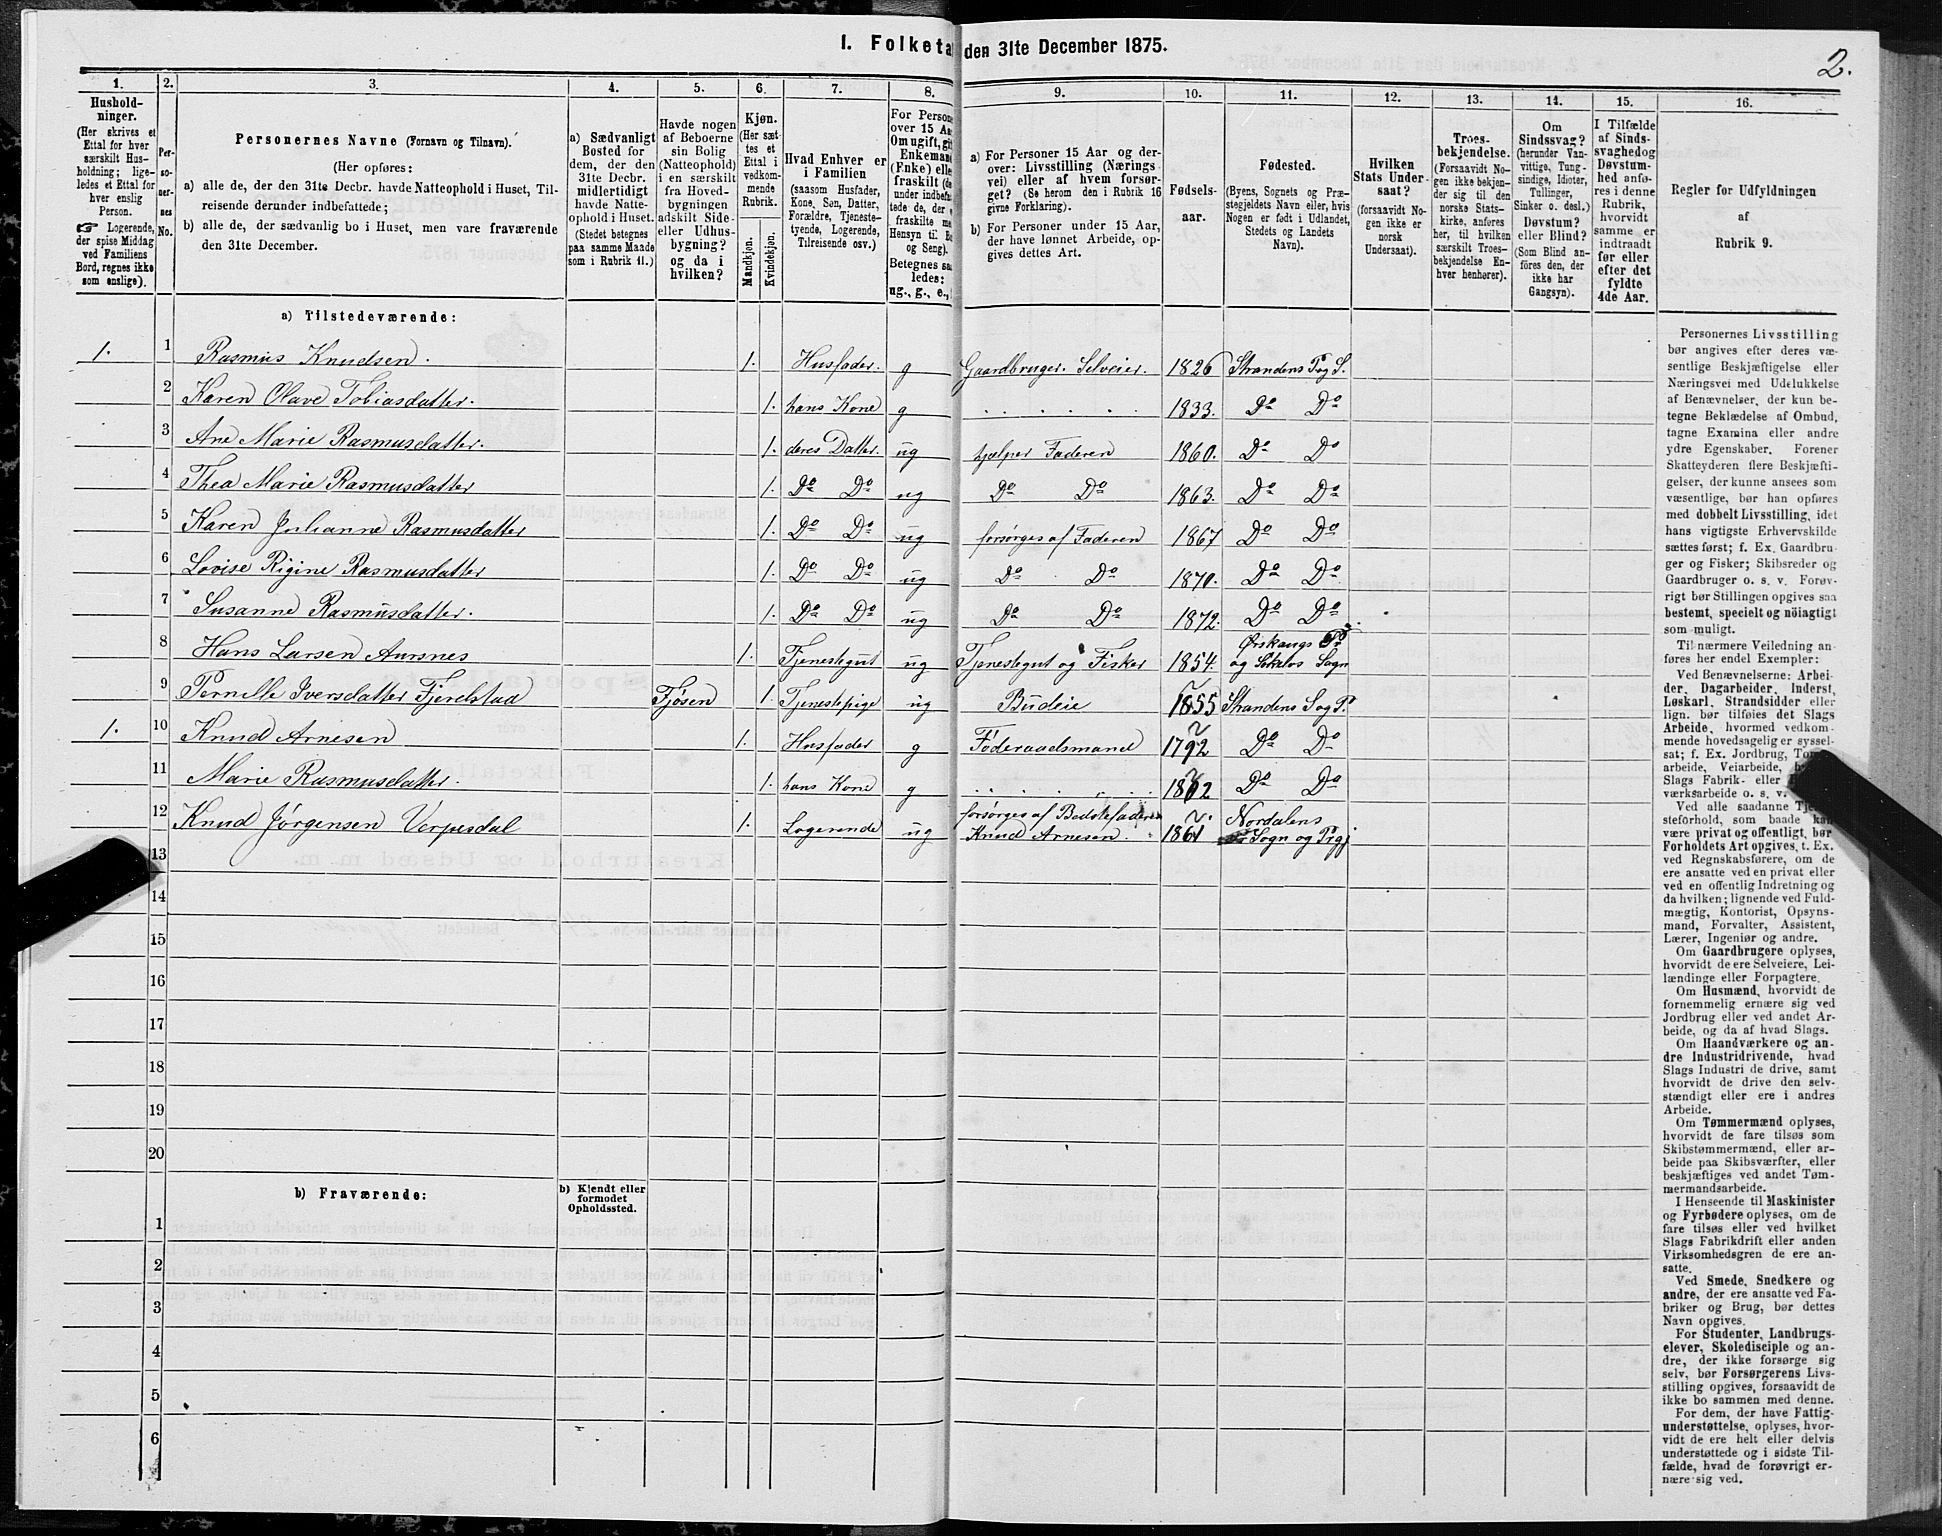 I. Folketa den 31te December 1875.
2.
1.
Hushold-
ninger.
(Her skrives et
Ettal for hver
særskilt Hus-
holdning; lige-
ledes et Ettal for
hver enslig
Person.
☞ Logerende,
der spise Middag
ved Familiens
Bord, regnes ikke
som enslige).
2.
Per-
so-
ner-
nes
No.
3.
Personernes Navne (Fornavn og Tilnavn).
(Her opføres:
a) alle de, der den 31te Decbr. havde Natteophold i Huset, Til-
reisende derunder indbefattede;
b) alle de, der sædvanlig bo i Huset, men vare fraværende
den 31te December.
4.
a) Sædvanligt
Bosted for
dem, der den
31te Decbr.
midlertidigt
havde Natte-
ophold i Huset.
(Stedet betegnes
paa samme Maade
som i Rubrik 11.)
5.
Havde nogen
af Beboerne
sin Bolig
(Natteophold)
i en særskilt
fra Hoved-
bygningen
adskilt Side-
eller Udhus-
bygning?
og da i
hvilken?
6.
Kjøn.
(Her sæt-
tes et
Ettal i
vedkom-
mende
Rubrik.
Mandkjøn.
Kvindekjøn.
7.
Hvad Enhver er
i Familien
(saasom Husfader,
Kone, Søn, Datter,
Forældre, Tjeneste-
tyende, Logerende,
Tilreisende osv.)
8.
For Persone
over 15 Aa
Om ugift, gif
Enkemand
(Enke) elle
fraskilt (de
under indbefat-
tede de, der e
fraskilte me
Hensyn til Bo
og Seng).
Betegnes saa
ledes:
ug., g., e.,
9.
a) For Personer 15 Aar og der-
over: Livsstilling (Nærings-
vei) eller af hvem forsør-
get? (Se herom den i Rubrik 16
givne Forklaring).
b) For Personer under 15 Aar,
der have lønnet Arbeide, op-
gives dettes Art.
10.
Fødsels-
aar.
11.
Fødested.
(Byens, Sognets og Præ-
stegjeldets Navn eller, hvis
Nogen er født i Udlandet,
Stedets og Landets
Navn).
12.
Hvilken
Stats Under-
saat?
(forsaavidt No-
gen ikke er
norsk
Undersaat).
13.
Troes-
bekjendelse.
(Forsaavidt No-
gen ikke bekjen-
der sig til den
norske Stats-
kirke, anføres
her, til hvilken
særskilt Troes-
bekjendelse En-
hver henhører).
14.
Om
Sindssvag?
(herunder Van-
vittige, Tung-
sindige, Idioter,
Tullinger,
Sinker o. desl.)
Døvstum?
eller Blind?
(Som Blind an-
føres den, der
ikke har
Gangsyn).
15.
I Tilfælde
af Sinds-
svaghed og
Døvstum-
hed anfø-
res i denne
Rubrik,
hvorvidt
samme er
indtraadt
før eller
efter det
fyldte
4de Aar.
16.
Regler for Udfyldningen
af
Rubrik 9.
a) Tilstedeværende:
1. 1 Rasmus Knudsen. 1. Husfader. g Gaardbruger. Selveier. 1826 Strandens P og S.
2 Karen Olave Tobiasdatter. 1. hans Kone g . . . . . . 1833. Do Do
3 Ane Marie Rasmusdatter. 1. deres Datter. ug hjælper Faderen 1860. Do Do
4 Thea Marie Rasmusdatter 1. Do Do ug Do Do 1863. Do Do
5 Karen Julianne Rasmusdatter 1. Do Do ug forsørges af Faderen 1867 Do Do
6 Lovise Rigine Rasmusdatter 1. Do Do ug Do Do 1870. Do Do
7 Susanne Rasmusdatter. 1. Do Do ug Do Do 1872. Do Do
8 Hans Larsen Aursnes 1. Tjenestegut ug Tjenestegut og Fisker 1854. Ørskougs
og Sogn
9 Pernille Iversdatter Fjerdstad Fjøsen 1. Tjenestepige ug Budeie 1855 Strandens S og P.
1. 10 Knud Arnesen 1. Husfader g Føderaadsmand 1792 Do Do
11 Marie Rasmusdatter. 1. hans Kone g . . . . . . Do Do
12 Knud Jørgensen Verpesdal 1. Logerende ug forsørges af Bedstefaderen
Knud Arnesen. 1861 Nordalens
Sogn og Prgj
13
14
15
16
17
18
19
20
b) Fraværende:
b) Kjendt eller
formodet
Opholdssted.
1
2
3
4
5
6
Personernes Livsstilling
bør angives efter deres væ-
sentlige Beskjæftigelse eller
Næringsvei med Udelukkelse
af Benævnelser, der kun be-
tegne Beklædelse af Ombud,
tagne Examina eller andre
ydre Egenskaber. Forener
Skatteyderen flere Beskjæfti-
gelser, der kunne ansees som
væsentlige, bør han opføres
med dobbelt Livsstilling, idet
hans vigtigste Erhvervskilde
sættes først; f. Ex. Gaardbru-
ger og Fisker; Skibsreder og
Gaardbruger o. s. v. Forøv-
rigt bør Stillingen opgives saa
bestemt, specielt og nöiagtigt
som muligt.
Til nærmere Veiledning an-
føres her endel Exempler:
Ved Benævnelserne: Arbei-
der, Dagarbeider, Inderst,
Løskarl, Strandsidder eller
lign. bør tilføies det Slags
Arbeide, hvormed vedkom-
mende hovedsagelig er syssel-
sat; f. Ex. Jordbrug, To
arbeide, Veiarbeide, h
Slags Fabrik- eller
værksarbeide o. s. v.
Ved alle saadanne Tje
steforhold, som baade kan
være privat og offentligt, bør
Forholdets Art opgives, t. Ex.
ved Regnskabsførere, om de
ere ansatte ved en privat eller
ved en offentlig Indretning og
da hvilken; lignende ved Fuld-
mægtig, Kontorist, Opsyns-
mand, Forvalter, Assistent,
Lærer, Ingeniør og andre.
Om Gaardbrugere oplyses,
hvorvidt de ere Selveiere, Lei-
lændinge eller Forpagtere.
Om Husmænd, hvorvidt de
fornemmelig ernære sig ved
Jordbrug eller ved andet Ar-
beide, og da af hvad Slags.
Om Haandværkere og an-
dre Industridrivende, hvad
Slags Industri de drive, samt
hvorvidt de drive den selv-
stændigt eller ere i andres
Arbeide.
Om Tømmermænd oplyses,
hvorvidt de fare tilsøs som
Skibstømmermænd, eller ar-
beide paa Skibsværfter, eller
beskjæftiges ved andet Tøm-
mermandsarbeide.
I Henseende til Maskinister
og Fyrbødere oplyses, om de
fare tilsøs eller ved hvilket
Slags Fabrikdrift eller anden
Virksomhedsgren de ere an-
satte.
Ved Smede, Snedkere og
andre, der ere ansatte ved Fa-
briker og Brug, bør dettes
Navn opgives.
For Studenter, Landbrugs-
elever, Skoledisciple og an-
dre, der ikke forsørge sig
selv, bør Forsørgerens Livs-
stilling opgives, forsaavidt de
ikke bo sammen med denne.
For dem, der have Fattig-
understøttelse, oplyses, hvor-
vidt de ere helt eller delvis
understøttede og i sidste Til-
fælde, hvad de forøvrigt er-
nære sig ved.